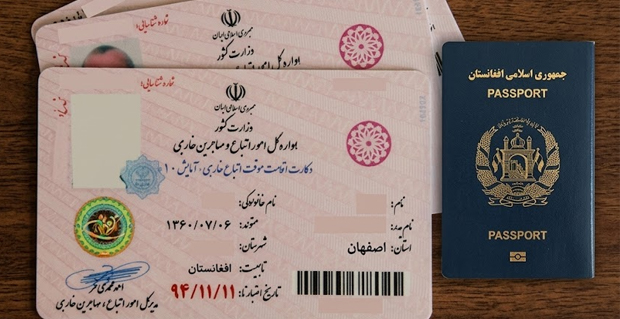 شماره شناسایی:
جمهوری اسلامی ایران
وزارت کشور
شماره شناسایی:
جمهوری اسلامی ایران
وزارت کشور
بواره کل امور اتباع و مهاجرین خارجی
کارت اقامت موقت اتباع خارجی، آمایش ۱۰
نام:
نام خانوادگی:
نام پدر:
متولد: ۱۳۶۰/۰۷/۰۶
استان: اصفهان
شهرستان:
تابیت: افغانستان
تاریخ اعتبار تا: ۹۴/۱۱/۱۱
مدیرکل امور اتباع و مهاجرین خارجی
جمهوری اسلامی افغانستان
PASSPORT
PASSPORT